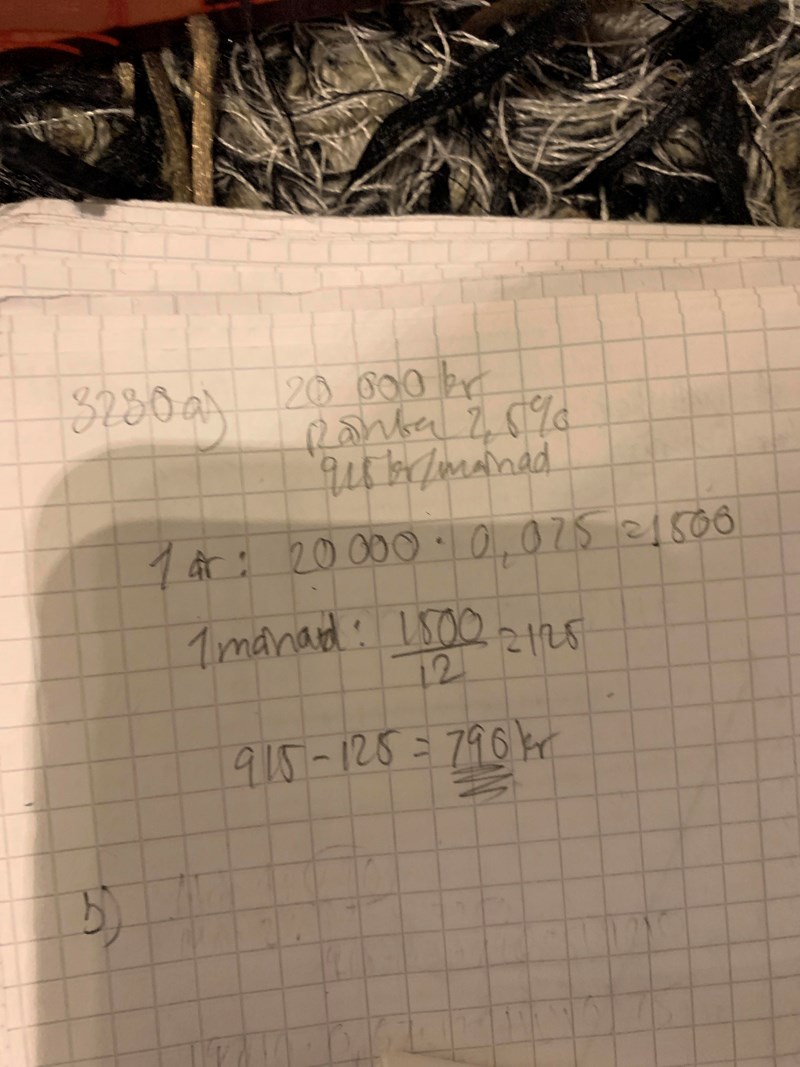 3230 a) 20 000 kr
Ränta 7,5%
915 kr/månad
1 år: 20 000 · 0,075 = 1500
1 månad: 1500/12 = 125
915 - 125 = 790 kr
b)